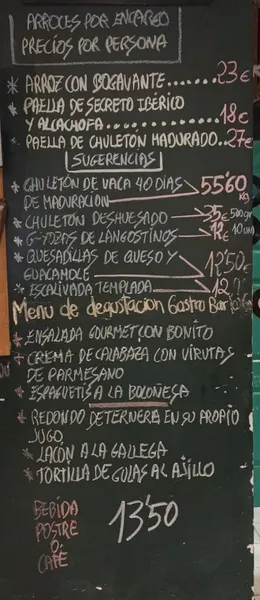 ARROCES POR ENCARGO
PRECIOS POR PERSONA
* ARROZ CON BOGAVANTE....... 23€
* PAELLA DE SECRETO IBÉRICO
Y ALCACHOFA............ 18€
* PAELLA DE CHULETÓN MADURADO.. 27€
SUGERENCIAS
* CHULETÓN DE VACA 40 DIAS
DE MADURACIÓN 55'60 KG
* CHULETÓN DESHUESADO 35€ 500gr
* GYOZAS DE LANGOSTINOS 12€
* QUESADILLAS DE QUESO Y
GUACAMOLE 12'50€
* ESCALIVADA TEMPLADA
Menu de degustacion Gastro Bar
* ENSALADA GOURMET CON BONITO
* CREMA DE CALABAZA CON VIRUTAS
DE PARMESANO
* ESPAGUETIS A LA BOLOÑESA
* REDONDO DE TERNERA EN SU PROPIO
JUGO
* LACÓN A LA GALLEGA
* TORTILLA DE GULAS AL AJILLO
BEBIDA
POSTRE
O
CAFÉ
13'50